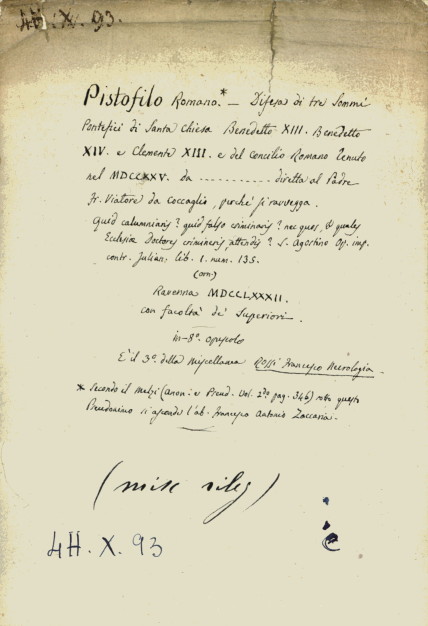 4H. X. 93.
Pistofilo Romano.* — Difesa di tre Sommi
Pontefici di Santa Chiesa Benedetto XIII. Benedetto
XIV. e Clemente XIII. e del Concilio Romano tenuto
nel MDCCXXV. da ............ diretta al Padre
Fr. Viatore da Coccaglio, perchè si ravvegga.
Quid calumniaris? quid falso criminaris? nec quos, & quales
Ecclesiæ Doctores crimineris, attendis? S. Agostino Op. imp.
contr. Julian: lib. 1. num. 135.
(orn:)
Ravenna MDCCLXXXII.
con facoltà de' Superiori.
in-8º. opuscolo
È il 3º. della Miscellanea Rossi Francesco Necrologia.
* Secondo il Melzi (Anon: e Pseud. Vol. 2do pag. 346) sotto questo
Pseudonimo si asconde l'ab. Francesco Antonio Zaccaria.
(misc rileg)
4H. X. 93